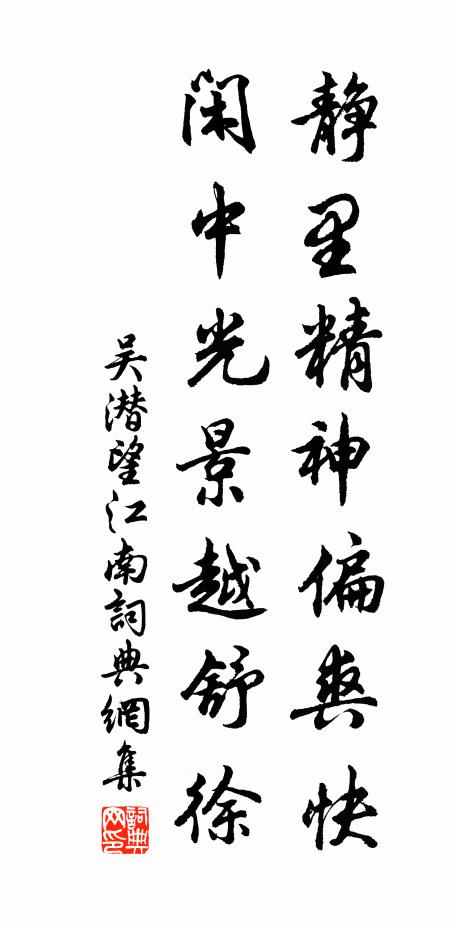 静里精神偏爽快
闲中光景越舒徐
吴潜望江南詞典網集
詞典网印